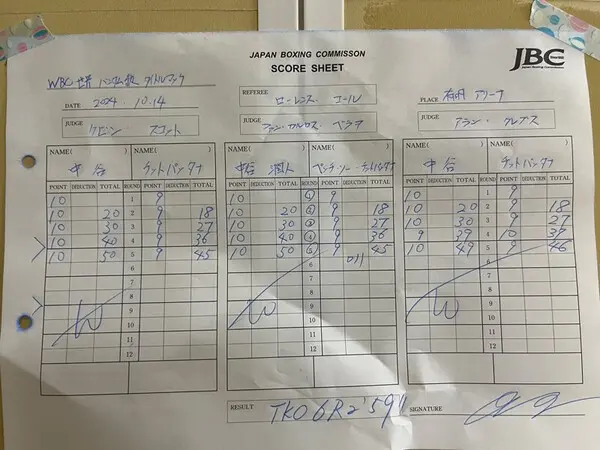 JAPAN BOXING COMMISSON
SCORE SHEET
JBC
Japan Boxing Commission
WBC世界 バンタム級 タイトルマッチ
DATE 2024.10.14
REFEREE ローレンス コール
PLACE 有明 アリーナ
JUDGE ケビン スコット
JUDGE フアン・カルロス・ペラヨ
JUDGE アラン・クレブス
NAME( ) NAME( ) NAME( ) NAME( ) NAME( ) NAME( )
中谷 チットパンタナ 中谷 潤人 中谷 チットパンタナ
POINT DEDUCTION TOTAL ROUND POINT DEDUCTION TOTAL POINT DEDUCTION TOTAL ROUND POINT DEDUCTION TOTAL POINT DEDUCTION TOTAL ROUND POINT DEDUCTION TOTAL
10 1 9 10 1 9 10 1 9
10 20 2 9 18 10 20 2 9 18 10 20 2 9 18
10 30 3 9 27 10 30 3 9 27 10 30 3 9 27
10 40 4 9 36 10 40 4 9 36 9 39 4 10 37
10 50 5 9 45 10 50 5 9 45 10 49 5 9 46
6 6 6
7 7 7
8 8 8
9 9 9
W 10 W 10 W 10
11 11 11
12 12 12
RESULT TKO 6R 2'59"
SIGNATURE